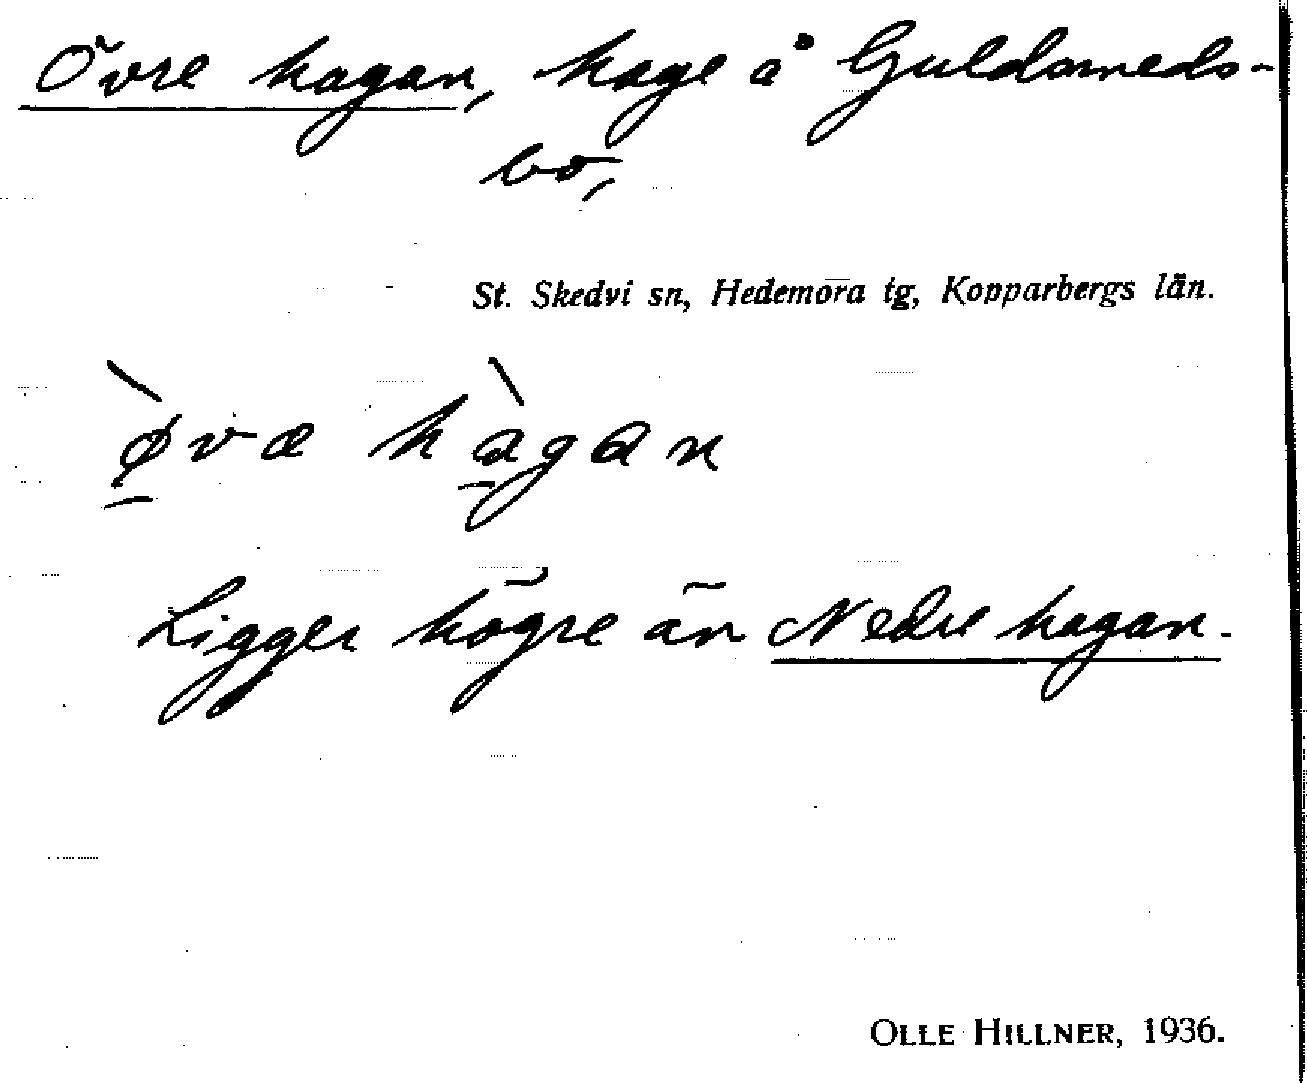 Övre hagan, hage å Guldsmeds-
bo,
St. Skedvi sn, Hedemora tg, Kopparbergs län.
ø̱̀væ hà̱gan
Ligger högre än Nedre hagan.
OLLE HILLNER, 1936.